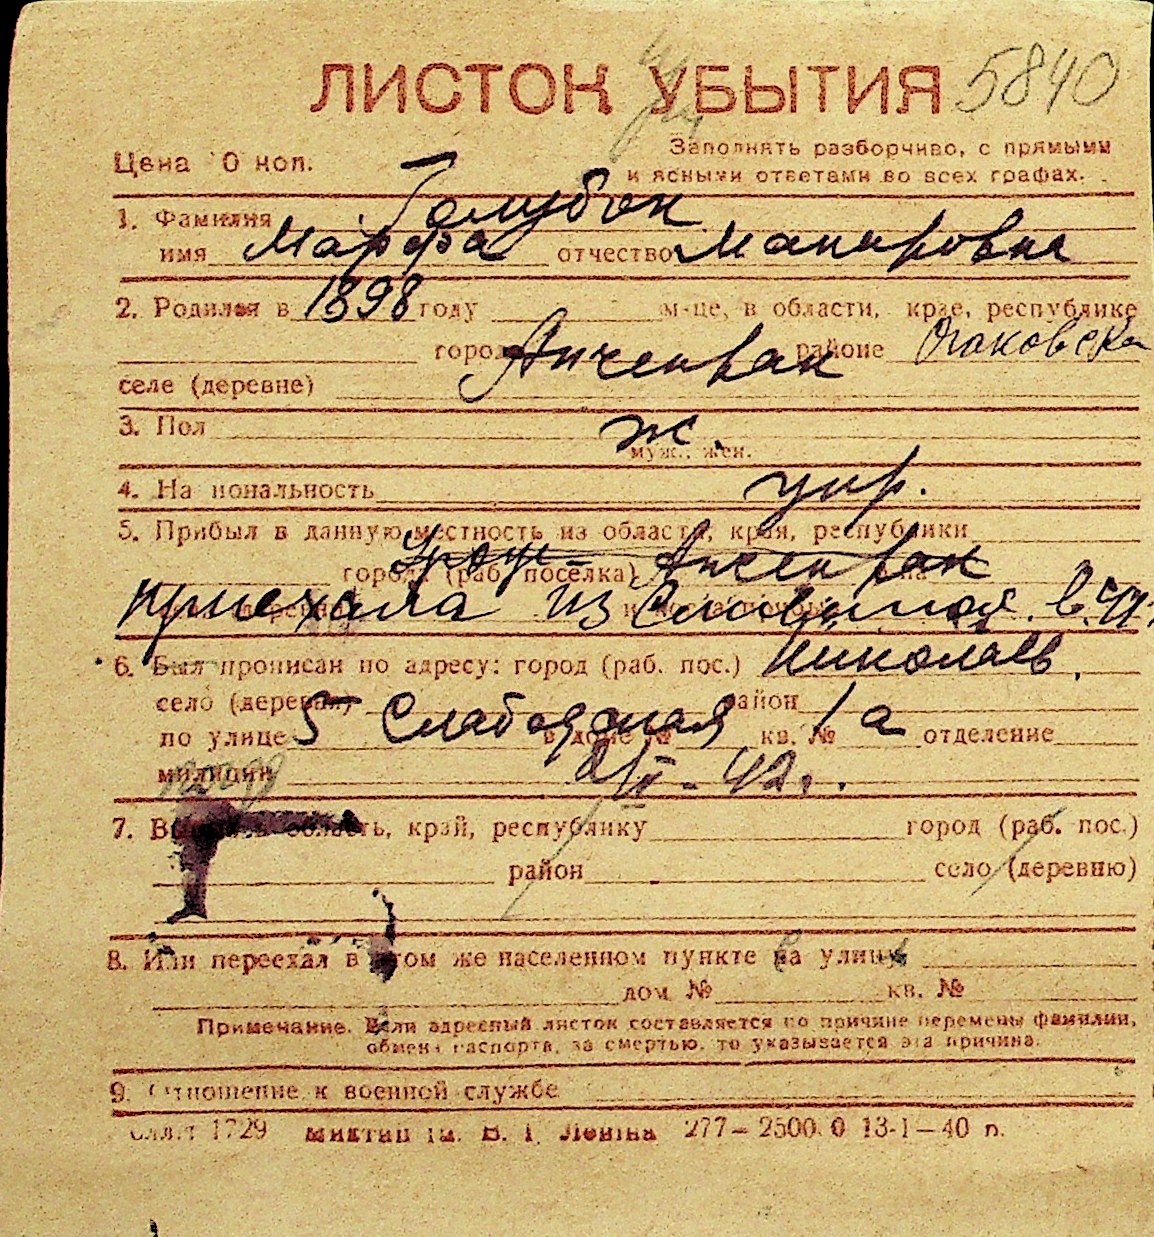 ЛИСТОК УБЫТИЯ 5840
Цена 10 коп.
Заполнять разборчиво, с прямыми
и ясными ответами во всех графах.
1. Фамилия Голубок
имя Марфа отчество Макаровна
2. Родился в 1898 году м-це, в области, крае, республике
город Анчекрак районе Очаковска
селе (деревне)
3. Пол ж.
муж., жен.
4. Национальность укр.
5. Прибыл в данную местность из области, края, республики
города (раб. поселка) Анчекрак
приехала из
6. Был прописан по адресу: город (раб. пос.) Николаев.
село (деревня) район
по улице 5 Слабодская в доме № кв. № 1а отделение
милиции 2/II-42г.
7. область, край, республику город (раб. пос.)
район село (деревню)
8. Или переехал в этом же населенном пункте на улицу
дом № кв. №
Примечание. Если адресный листок составляется по причине перемены фамилии,
обмена паспорта, за смертью, то указывается эта причина.
9. Отношение к военной службе
1729 им. В. І. Леніна 277—2500.0 13-1—40 п.